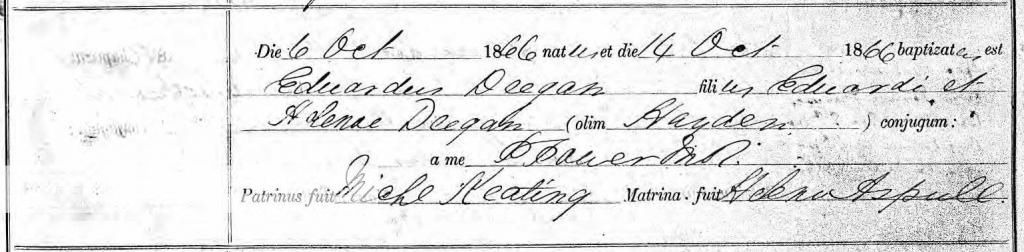 Die 6 Oct 1866 natus et die 14 Oct 1866 baptizatus est
Eduardus Deegan filius Eduardi et
Helenae Deegan (olim Hayden) conjugum:
a me P Power
Patrinus fuit Michl Keating Matrina fuit Helena Aspull.